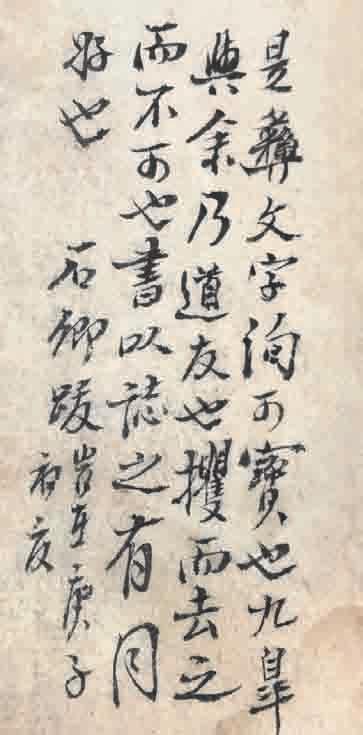 是彝文字洵可寶也九皋
與余乃道友也攫而去之
而不可也書以誌之有同
好也
石卿跋
岩在庚子
初夏